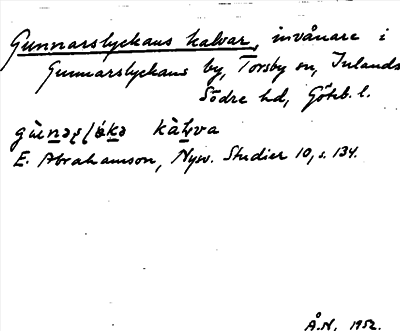 Gunnarslyckans kalvar, invånare i
Gunnarslyckans by, Torsby sn, Inlands
Södre hd, Göteb. l.
E. Abrahamson, Nysv. Studier 10, s. 134.
Å.H. 1952.